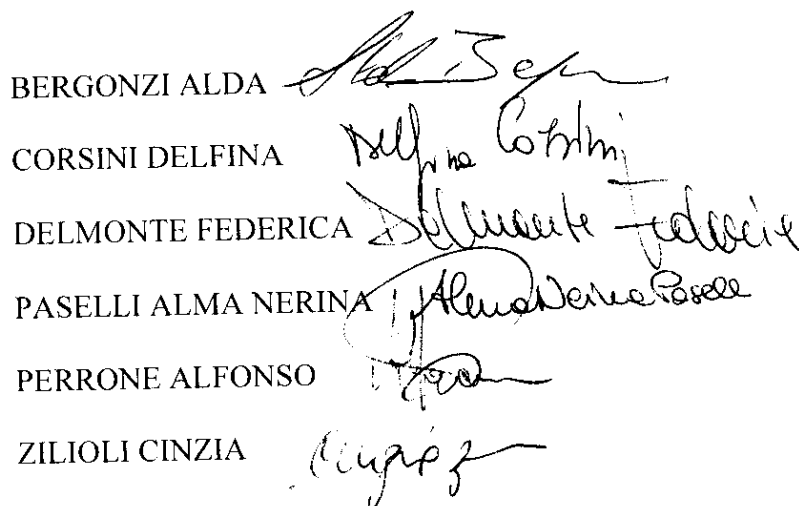 BERGONZI ALDA
CORSINI DELFINA Delfina Corsini
DELMONTE FEDERICA Delmonte Federica
PASELLI ALMA NERINA Alma Nerina Paselli
PERRONE ALFONSO
ZILIOLI CINZIA